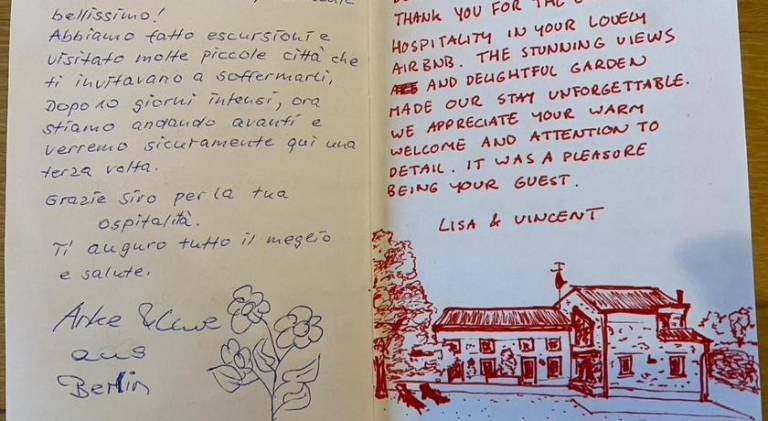 bellissimo!
Abbiamo fatto escursioni e
visitato molte piccole città che
ti invitavano a soffermarti.
Dopo 10 giorni intensi, ora
stiamo andando avanti e
verremo sicuramente qui una
terza volta.
Grazie Siro per la tua
ospitalità.
Ti auguro tutto il meglio
e salute.
aus
Berlin
THANK YOU FOR THE
HOSPITALITY IN YOUR LOVELY
AIRBNB. THE STUNNING VIEWS
AND DELIGHTFUL GARDEN
MADE OUR STAY UNFORGETTABLE.
WE APPRECIATE YOUR WARM
WELCOME AND ATTENTION TO
DETAIL. IT WAS A PLEASURE
BEING YOUR GUEST.
LISA & VINCENT